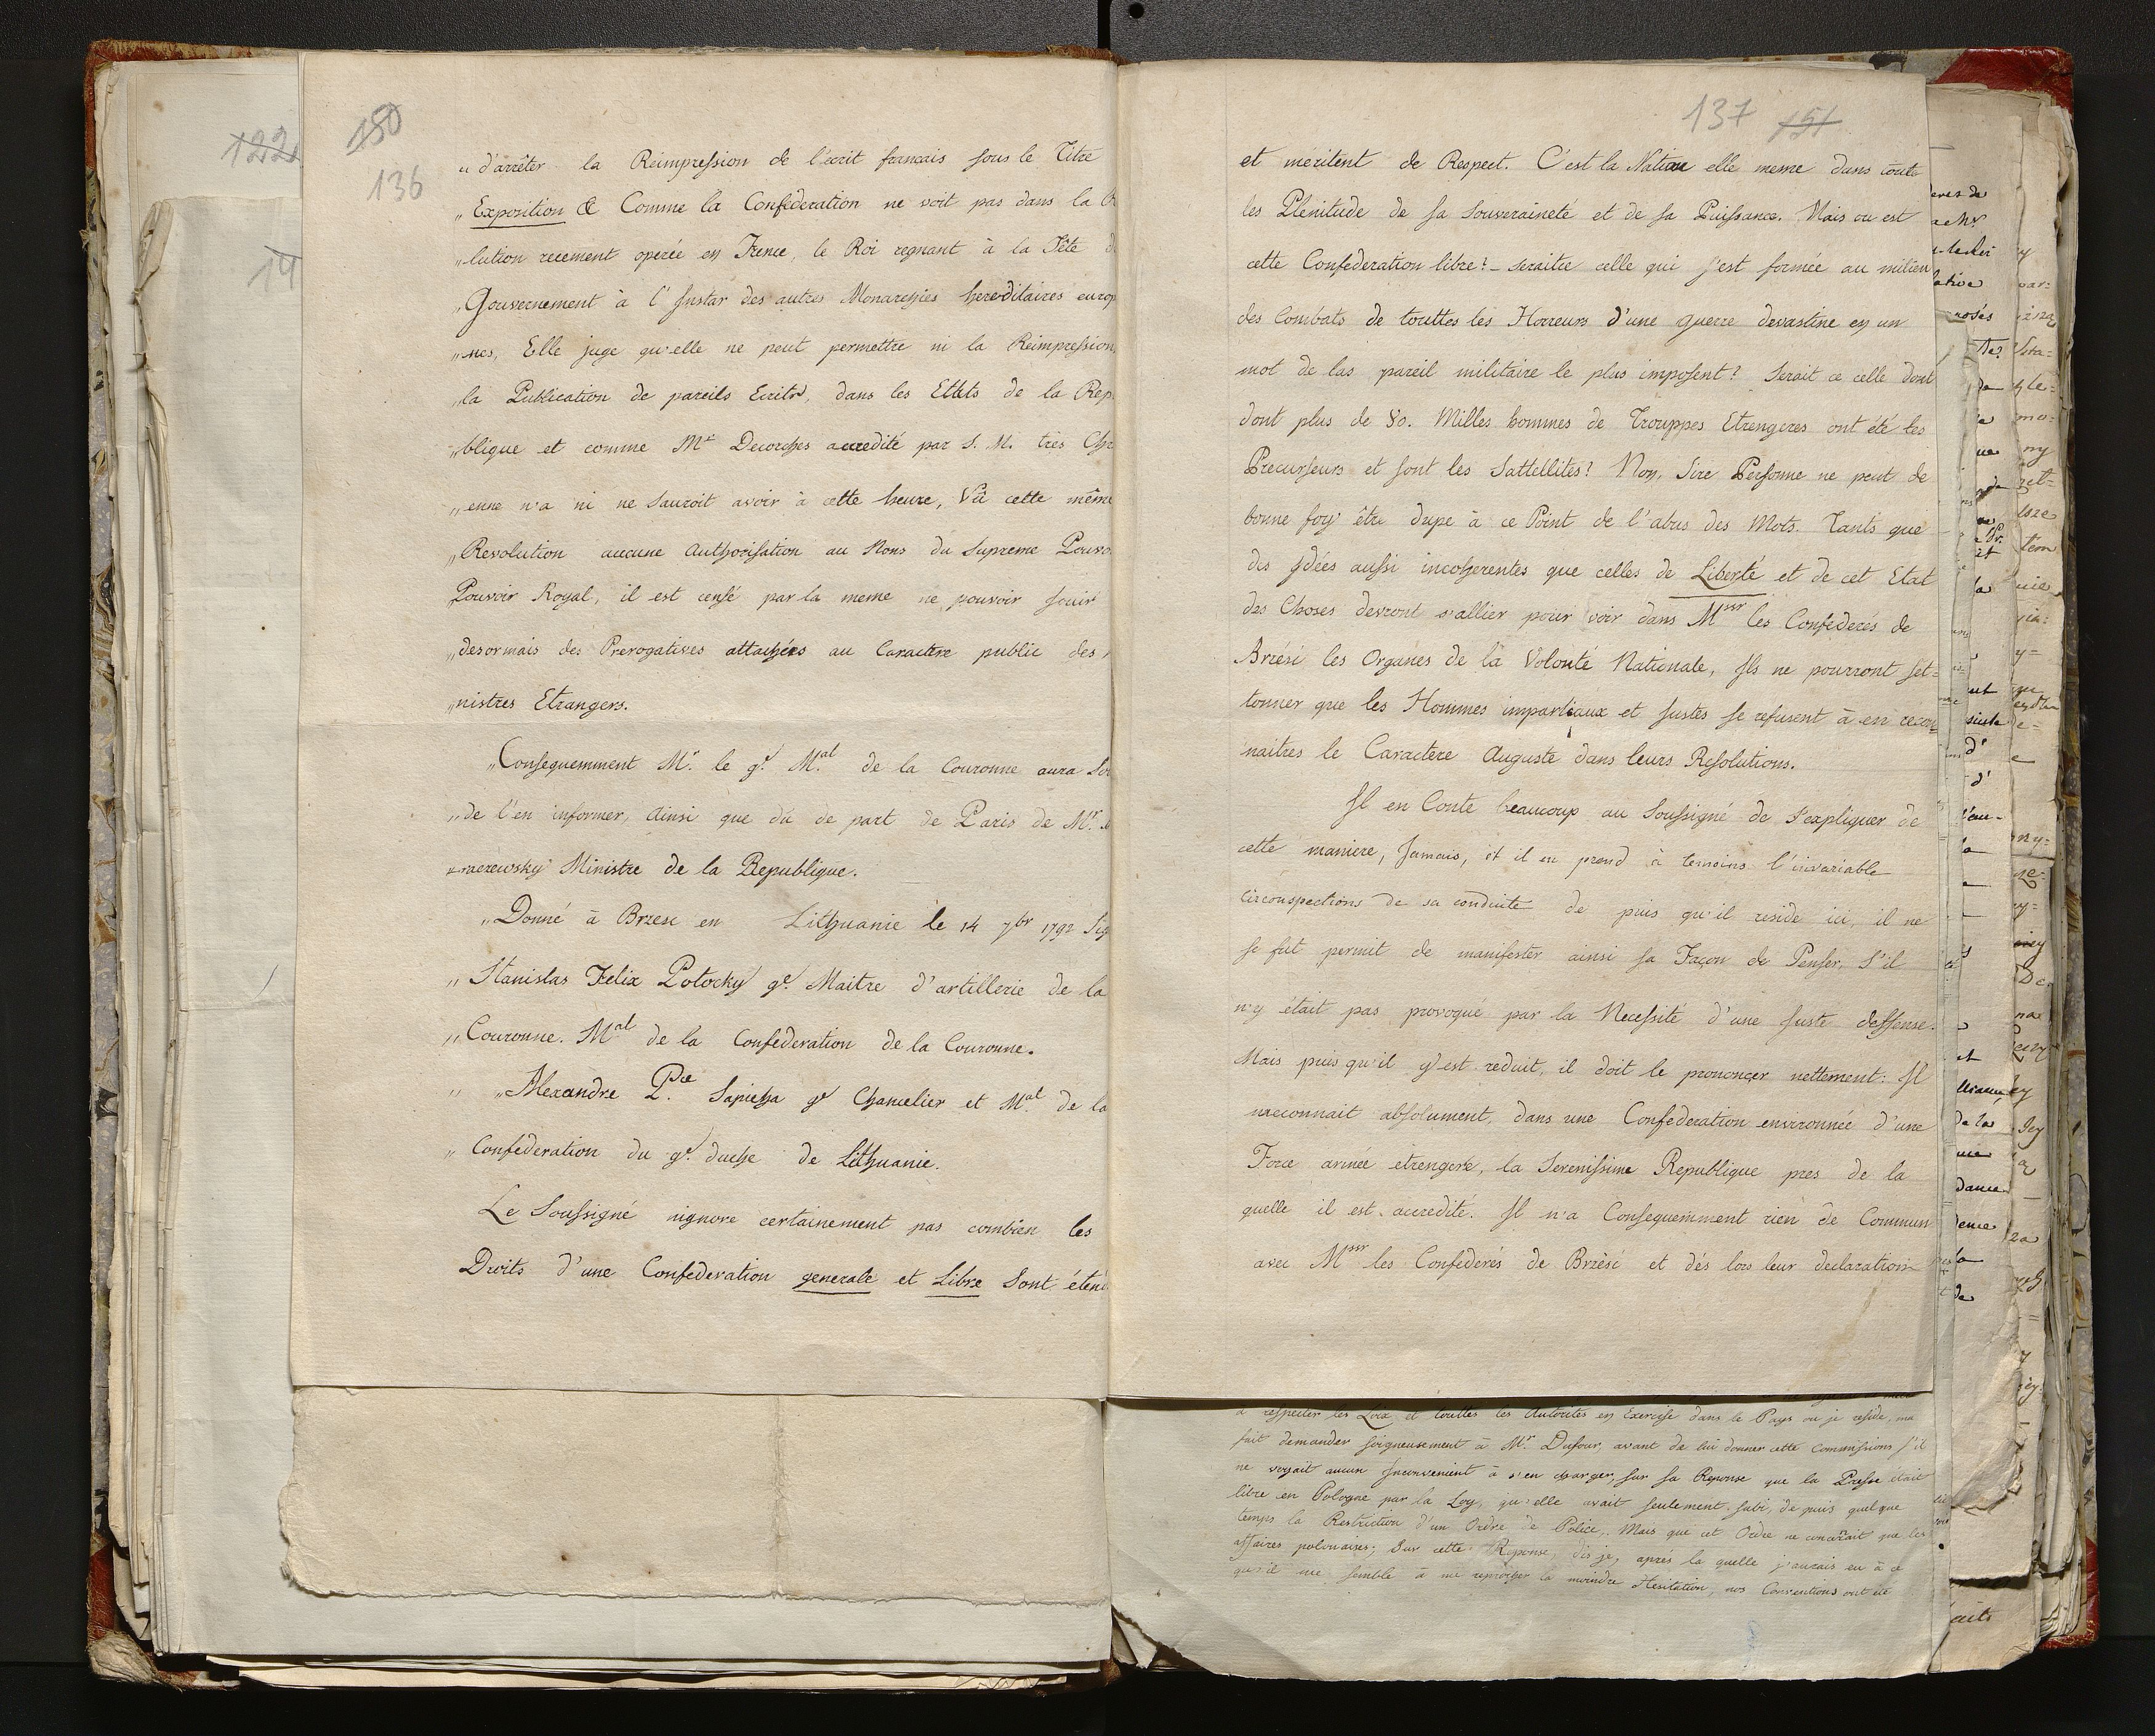 122
14
150
136
„ d'arrêter la Reimpression de l'ecrit francais sous le Titre
„ Exposition & Comme la Confederation ne voit pas dans la
„lution recement operée en France, le Roi regnant à la Tête
„Gouvernement à l'Instar des autres Monarchies hereditaires europ
„nes, Elle juge qu'elle ne peut permettre ni la Reimpression,
„la Publication de pareils Ecrits, dans les Ettets de la Rep
„blique et comme Mr Decorches accredité par S. M. très Chr
„enne n'a ni ne Sauroit avoir à cette heure, Vû cette même
„Revolution aucune Authorisation au Nons du Supreme Pouvo
„Pouvoir Royal, il est censé par la meme ne pouvoir Jouir
„desormais des Prerogatives attachées au Caractère public des
„nistres Etrangers.
„Consequemment Mr. le gd. Mal. de la Couronne aura
„de l'en informer, Ainsi que du de part de Paris de Mr.
raczewsky Ministre de la Republique.
„Donné à Brzesc en Lithuanie le 14 7br 1792 Sig
„Stanislas Felix Potocky gd. Maitre d'artillerie de la
„Couronne. Mal de la Confederation de la Couronne.
„ „Alexandre Pce. Sapieha gd Chancelier et Mal. de la
„ Confederation du gd. duche de Lithuanie.
Le Soussigné nignore certainement pas combien les
Droits d'une Confederation generale et Libre Sont étend
137 151
et meritent de Respect. C'est la Nation elle meme dans toute
les Plenitude de sa Souveraineté et de sa Puissance. Mais ou est
cette Confederation libre? - seraitce celle qui s'est formée au milieu
des Combats de touttes les Horreurs d'une guerre devastine en un
mot de las pareil militaire le plus imposent? Serait ce celle dont
dont plus de 80. Milles hommes de Trouppes Etrengeres ont été les
Precurseurs et sont les Sattellites? Non, Sire Personne ne peut de
bonne foy être dupe à ce Point de l'abus des Mots. Tants que
des Ydées aussi incoherentes que celles de Liberté et de cet Etat
des Choses devront s'allier pour voir dans Msrs les Confederés de
Brzésc les Organes de la Volonté Nationale, Ils ne pourront set=
tonner que les Hommes impartiaux et Justes se refusent à en recon
naitres le Caractere Auguste dans leurs Resolutions.
Il en Conte beaucoup au Soussigné de s'expliquer de
cette maniere, Jamais, et il en prend à temoins l'invariable
Circonspections de sa conduite de puis qu'il reside ici, il ne
se fut permit de manifester ainsi sa Façon de Penser, S'il
n'y était pas provoqué par la Necessité d'une Juste deffense.
Mais puis qu'il y'est reduit, il doit le prononcer nettement: Il
naeconnait absolument, dans une Confederation environnée d'une
Force armée etrengere, la Serenissime Republique pres de la
quelle il est accredité. Il n'a Consequemment rien de Commun
avec Msrs les Confederés de Brzésc et dés lors leur declaration
à respecter les Loix et touttes les Autorites en Exercise dans le Pays ou je reside, ma
fait demander soigneusement à Mr. Dufour, avant de lui donner cette Commissions s'il
ne voyait aucun Inconvenient à s'en charger, sur sa Reponse que la Presse était
libre en Pologne par la Loy, qu'elle avait seulement subi, de puis quelque
temps la Restriction d'un Ordre de Police, Mais que cet Ordre ne concernait que les
affaires polonaises; Sur cette Reponse, dis je, aprés la quelle j'aurais eu à ce
qu'il me semble à me reprocher la moindre Hesitation, nos Conventions ont été